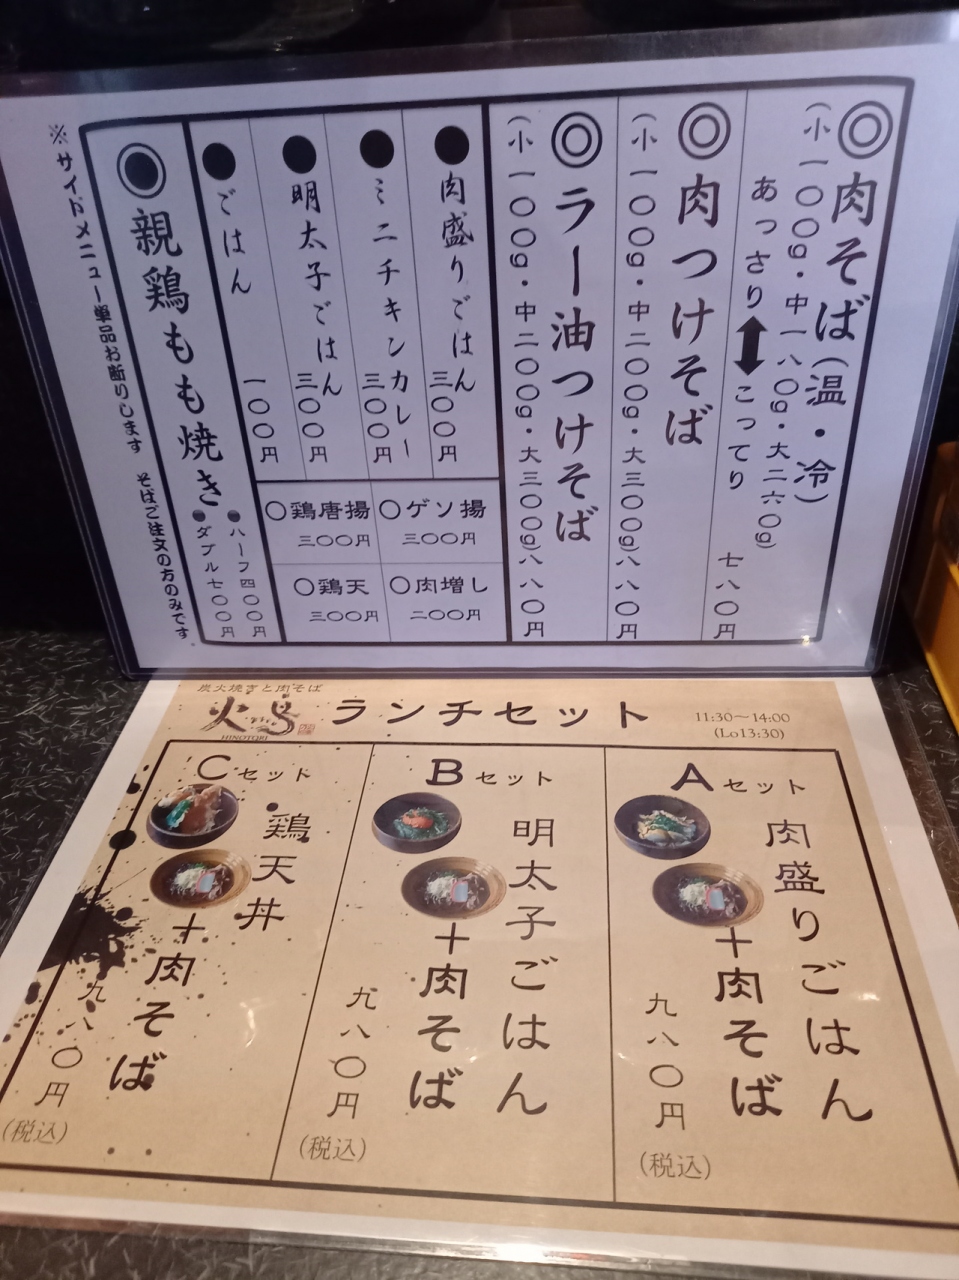 ◎肉そば(温・冷)
(小一〇〇g・中一八〇g・大二六〇g)
あっさり⬍こってり 七八〇円
◎肉つけそば
(小一〇〇g・中二〇〇g・大三〇〇g)八八〇円
◎ラー油つけそば
(小一〇〇g・中二〇〇g・大三〇〇g)八八〇円
●肉盛りごはん 三〇〇円
●ミニチキンカレー 三〇〇円
●明太子ごはん 三〇〇円
●ごはん 一〇〇円
○ゲソ揚 三〇〇円
○肉増し 二〇〇円
○鶏唐揚 三〇〇円
○鶏天 三〇〇円
◉親鶏もも焼き
●ハーフ四〇〇円
●ダブル七〇〇円
※サイドメニュー単品お断りします そばご注文の方のみです。
炭火焼きと肉そば
火鳥
HINOTORI
ランチセット
11:30〜14:00
(Lo13:30)
Aセット
肉盛りごはん
+肉そば
九八〇円
(税込)
Bセット
明太子ごはん
+肉そば
九八〇円
(税込)
Cセット
鶏天丼
+肉そば
九八〇円
(税込)